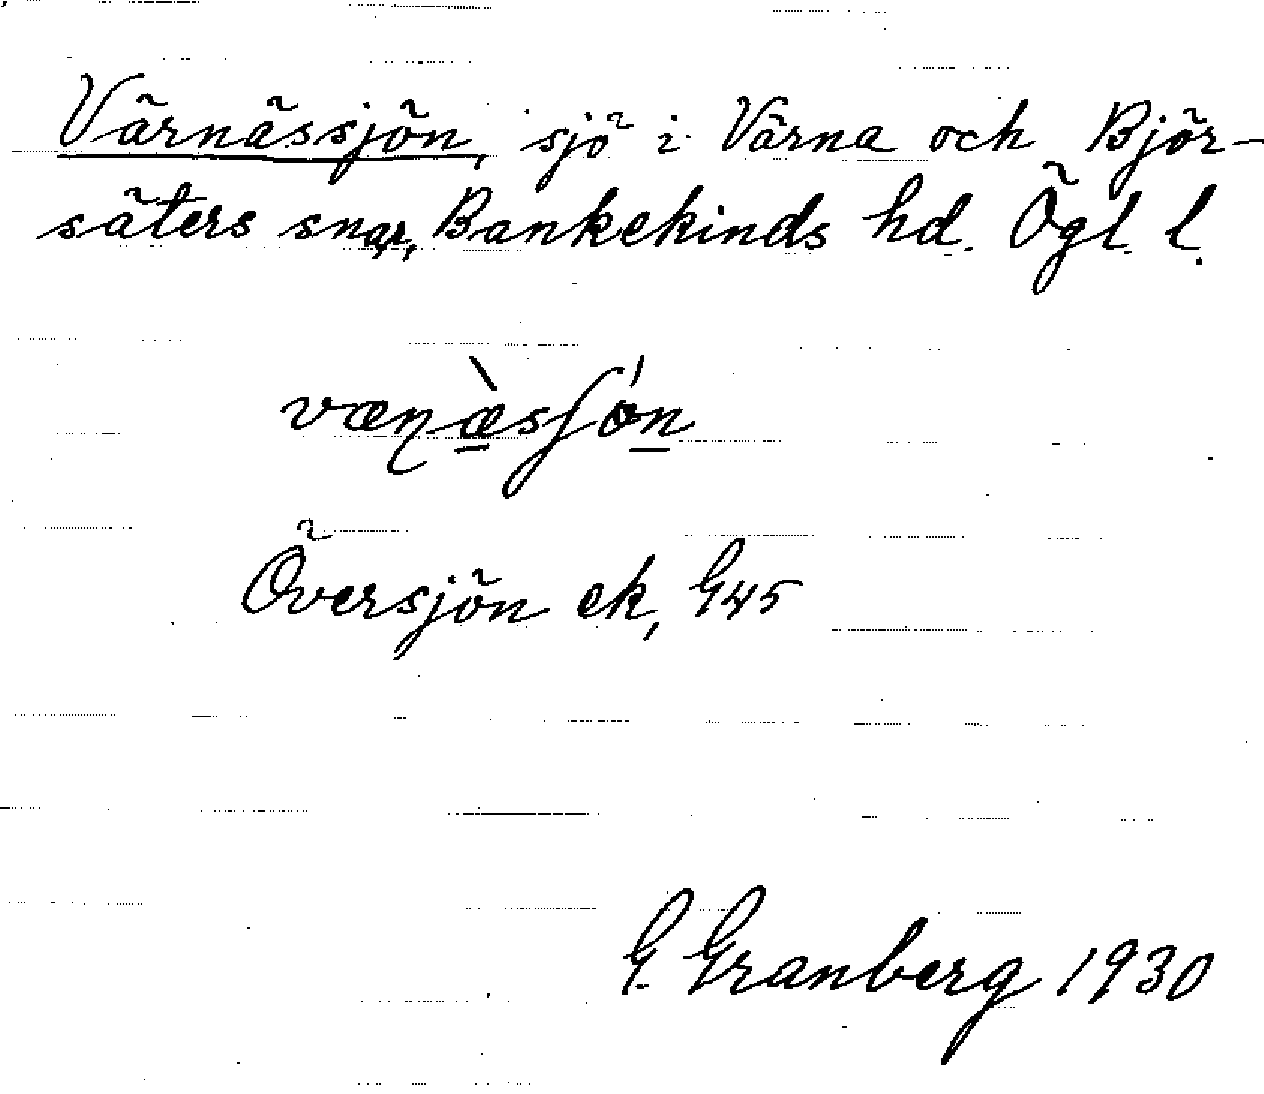 Värnässjön, sjö i Värna och Björ-
säters snar, Bankekinds hd. Ögl. l.
væɳæ̀sʃön
Översjön ek, G45
G. Granberg 1930